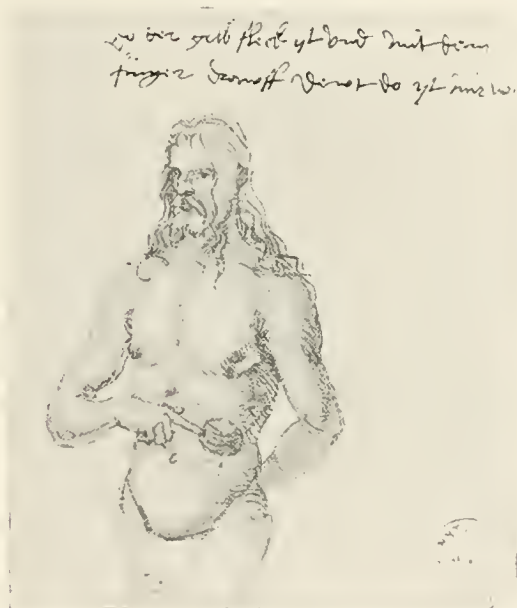 Do der gelb fleck ist und mit dem
finger drawff deut do ist mir we